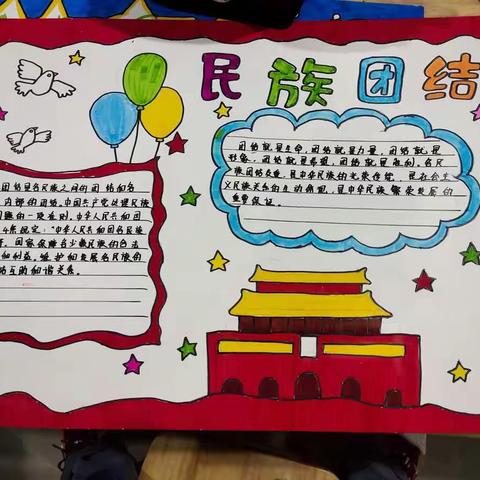 民族团结
团结就是生命，团结就是力量，团结就是
形象，团结就是希望，团结就是胜利。各民
族团结友爱，是中华民族的光荣传统，是在社会主
义民族关系的生动体现，是中华民族繁荣发展的
重要保证。
团结是各民族之间的团结和各
内部的团结。中国共产党处理民族
问题的一项原则。中华人民共和国
4条规定："中华人民共和国各民族
等。国家保障各少数民族的合法
和利益，维护和发展各民族的
结互助和谐关系。